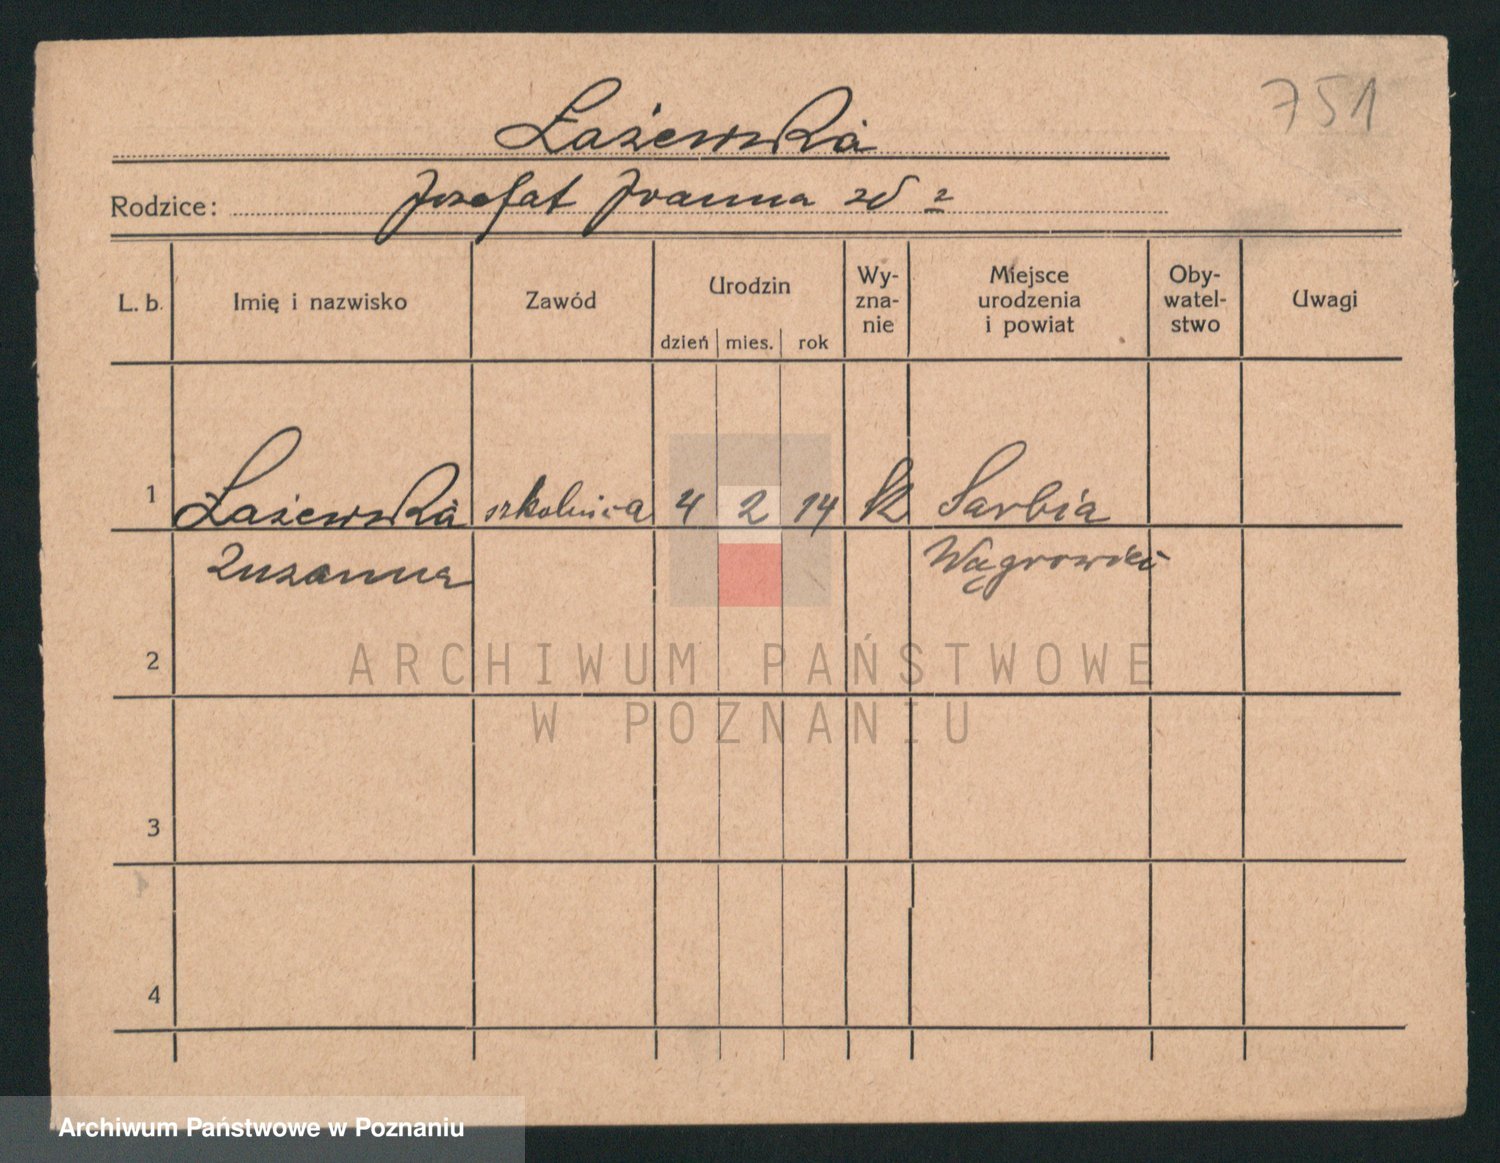 751
Łażewska
Rodzice: Jozefat Joanna zd
L. b. Imię i nazwisko Zawód Urodzin dzień mies. rok Wy-zna-nie Miejsce urodzenia i powiat Oby-watel-stwo Uwagi
1 Łażewska szkolnica 4 2 14 k Sarbia
Zuzanna Wągrowiec
2
3
4
ARCHIWUM PAŃSTWOWE
W POZNANIU
Archiwum Państwowe w Poznaniu